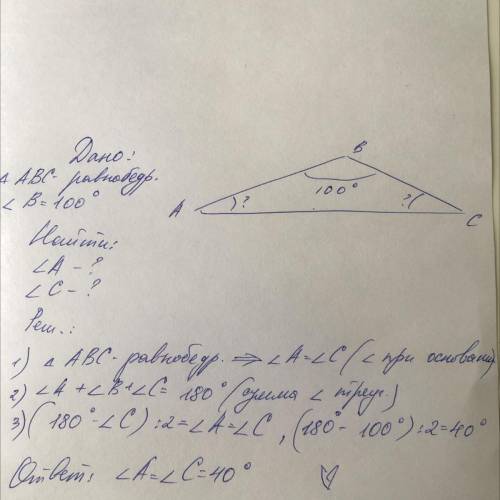 Дано:
△ ABC - равнобедр.
∠ B = 100°
B
100°
A ? ?( C
Найти:
∠A - ?
∠C - ?
Реш.:
1) △ ABC - равнобедр. ⇒ ∠A=∠C (∠ при основании)
2) ∠A + ∠B + ∠C = 180° (сумма ∠ треуг.)
3) (180° - ∠C) : 2 = ∠A = ∠C, (180° - 100°) : 2 = 40°
Ответ: ∠A = ∠C = 40°